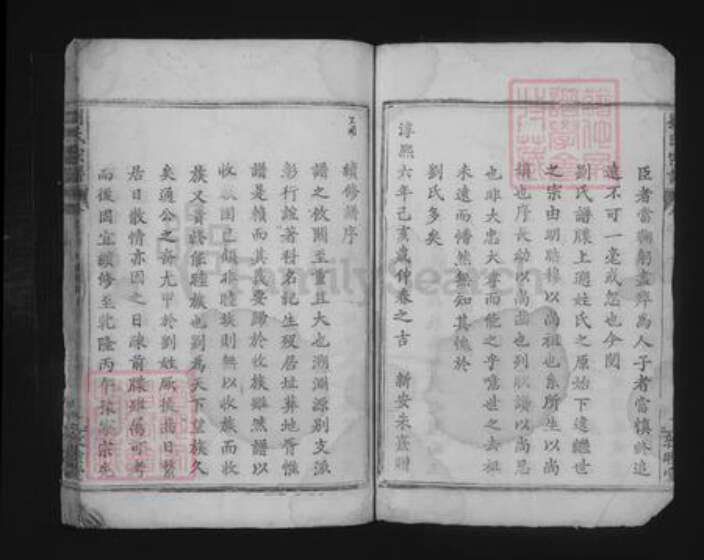 臣者當鞠躬盡瘁為人子者當慎終追
遠不可一毫或忽也今閱
劉氏譜牒上遡姓氏之原始下逮繼世
之宗由明昭穆以尚祖也系所生以尚
嫡也序長幼以尚齒也列
也非大忠大孝而能之乎噫世之去祖
未遠而懵然無知其愧於
劉氏多矣
淳熙六年己亥歲仲春之吉 新安朱熹
續修譜序
譜之攸關至重且大也溯淵源別支派
彰行誼著科名記生歿居址葬地胥惟
譜是賴而其義要歸於收族雖然譜以
收族固已顧非睦族則無以收族而收
族又貴於保睦族也劉為天下望族久
矣通公之裔尤甲於劉姓厥後指日繁
居日散情亦因之日疎前牒雖備可考
而後因宜續修至乾隆丙午
FamilySearch